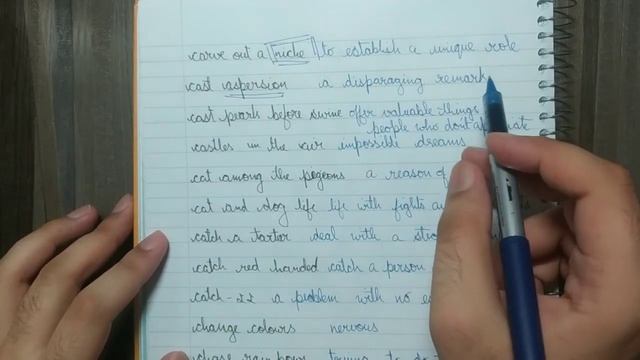 carve out a niche to establish a unique role
cast aspersion a disparaging remark
cast pearls before swine offer valuable things
people who don't
castles in the air impossible dreams
cat among the pigeons a reason of
cat and dog life life with fights
catch a tartar deal with a
catch red handed catch a person
catch-22 a problem with no
change colours nervous
chase rainbows trying to do